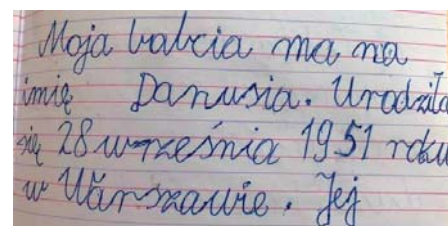 Moja babcia ma na
imię Danusia. Urodziła
się 28 września 1951 roku
w Warszawie. Jej